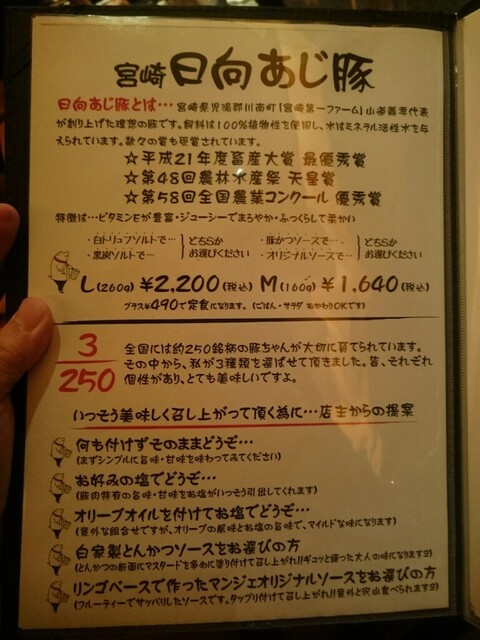 宮崎 日向あじ豚
日向あじ豚とは… 宮崎県児湯郡川南町「宮崎第一ファーム」山道義孝代表
が創り上げた理想の豚です。飼料は100%植物性を使用し、水はミネラル活性水を与
えられています。数々の賞も受賞されています。
☆平成21年度畜産大賞 最優秀賞
☆第48回農林水産祭 天皇賞
☆第58回全国農業コンクール 優秀賞
特徴は…ビタミンEが豊富・ジューシーでまろやか・ふっくらして柔かい
・白トリュフソルトで… ・黒炭ソルトで… どちらかお選びください
・豚かつソースで… ・オリジナルソースで… どちらかお選びください
L(260g) ¥2,200(税込) M(160g) ¥1,640(税込)
プラス¥490で定食になります。(ごはん・サラダ おかわりOKです)
3
250
全国には約250銘柄の豚ちゃんが大切に育てられています。
その中から、私が3種類を選ばせて頂きました。皆、それぞれ
個性があり、とても美味しいですよ。
いっそう美味しく召し上がって頂く為に…店主からの提案
何も付けずそのままどうぞ…
(まずシンプルに旨味・甘味を味わってみてください)
お好みの塩でどうぞ…
(豚肉特有の旨味・甘味をお塩がいっそう引出してくれます)
オリーブオイルを付けてお塩でどうぞ…
(意外な組合せですが、オリーブの風味とお塩の旨味で、マイルドな味になります)
自家製とんかつソースをお選びの方
(とんかつの断面にマスタードを多めに塗り付けて召し上がれ!!ギュッと締った大人の味になりますヨ)
リンゴベースで作ったマンジェオリジナルソースをお選びの方
(フルーティーでサッパリしたソースです。タップリ付けて召し上がれ!!意外と沢山食べられますヨ)